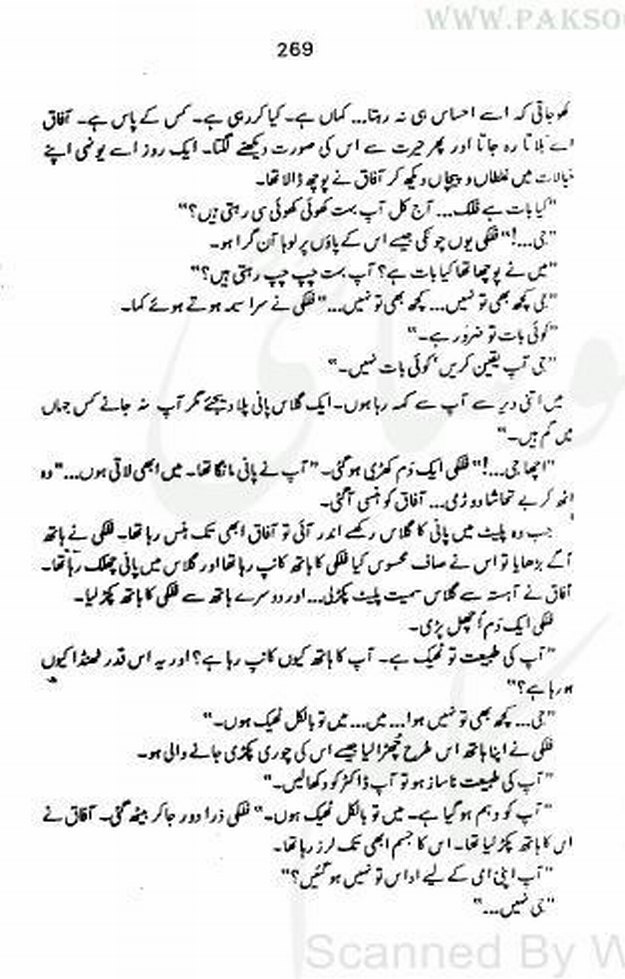 WWW.PAKSO
269
کھو جاتی کہ اسے احساس ہی نہ رہتا... کہاں ہے۔ کیا کر رہی ہے۔ کس کے پاس ہے۔ آفاق
اسے بلاتا رہ جاتا اور پھر حیرت سے اس کی صورت دیکھنے لگتا۔ ایک روز اسے یونہی اپنے
خیالات میں غلطاں و پیچاں دیکھ کر آفاق نے پوچھ ڈالا تھا۔
"کیا بات ہے فلک... آج کل آپ بہت کھوئی کھوئی سی رہتی ہیں؟"
"جی...!" فلکی یوں چونکی جیسے اس کے پاؤں پر لوہا آن گرا ہو۔
"میں نے پوچھا تھا کیا بات ہے؟ آپ بہت چپ چپ رہتی ہیں؟"
"جی کچھ بھی تو نہیں... کچھ بھی تو نہیں..." فلکی نے سراسیمہ ہوتے ہوئے کہا۔
"کوئی بات تو ضرور ہے۔"
"جی آپ یقین کریں' کوئی بات نہیں۔"
میں اتنی دیر سے آپ سے کہہ رہا ہوں۔ ایک گلاس پانی پلا دیجئے مگر آپ نہ جانے کس جہاں
میں گم ہیں۔"
"اچھا جی...!" فلکی ایک دَم کھڑی ہو گئی۔ "آپ نے پانی مانگا تھا۔ میں ابھی لاتی ہوں..." وہ
اٹھ کر بے تحاشا دوڑی... آفاق کو ہنسی آگئی۔
جب وہ پلیٹ میں پانی کا گلاس رکھے اندر آئی تو آفاق ابھی تک ہنس رہا تھا۔ فلکی نے ہاتھ
آگے بڑھایا تو اس نے صاف محسوس کیا فلکی کا ہاتھ کانپ رہا تھا اور گلاس میں پانی چھلک رہا تھا۔
آفاق نے آہستہ سے گلاس سمیت پلیٹ پکڑلی... اور دوسرے ہاتھ سے فلکی کا ہاتھ پکڑ لیا۔
فلکی ایک دَم اُچھل پڑی۔
"آپ کی طبیعت تو ٹھیک ہے۔ آپ کا ہاتھ کیوں کانپ رہا ہے؟ اور یہ اس قدر ٹھنڈا کیوں
ہو رہا ہے؟"
"جی... کچھ بھی تو نہیں ہوا... میں... میں تو بالکل ٹھیک ہوں۔"
فلکی نے اپنا ہاتھ اس طرح چھڑا لیا جیسے اس کی چوری پکڑی جانے والی ہو۔
"آپ کی طبیعت ناساز ہو تو آپ ڈاکٹر کو دکھا لیں۔"
"آپ کو وہم ہو گیا ہے۔ میں تو بالکل ٹھیک ہوں۔" فلکی ذرا دور جا کر بیٹھ گئی۔ آفاق نے
اس کا ہاتھ پکڑ لیا تھا۔ اس کا جسم ابھی تک لرز رہا تھا۔
"آپ اپنی امی کے لیے اداس تو نہیں ہو گئیں؟"
"جی نہیں..."
Scanned By W